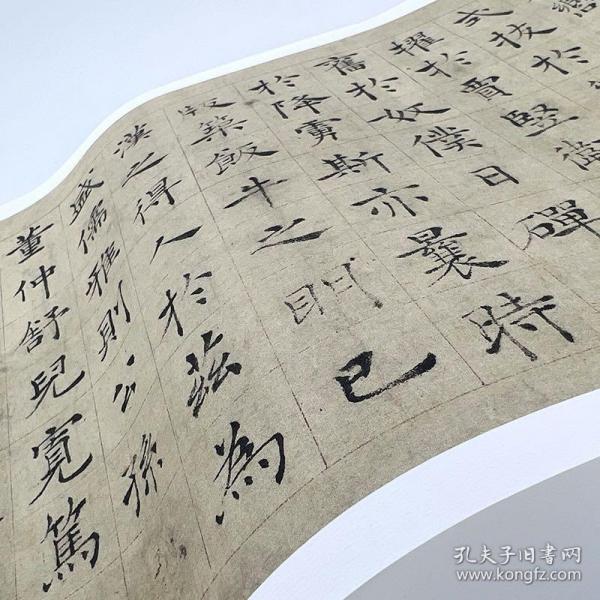 式拔於
擢於賈豎衛
奮於奴僕日磾
於降虜斯亦曩時
版築飯牛之朋已
漢之得人於茲為
盛儒雅則公孫
董仲舒兒寬篤
孔夫子旧书网
www.kongfz.com